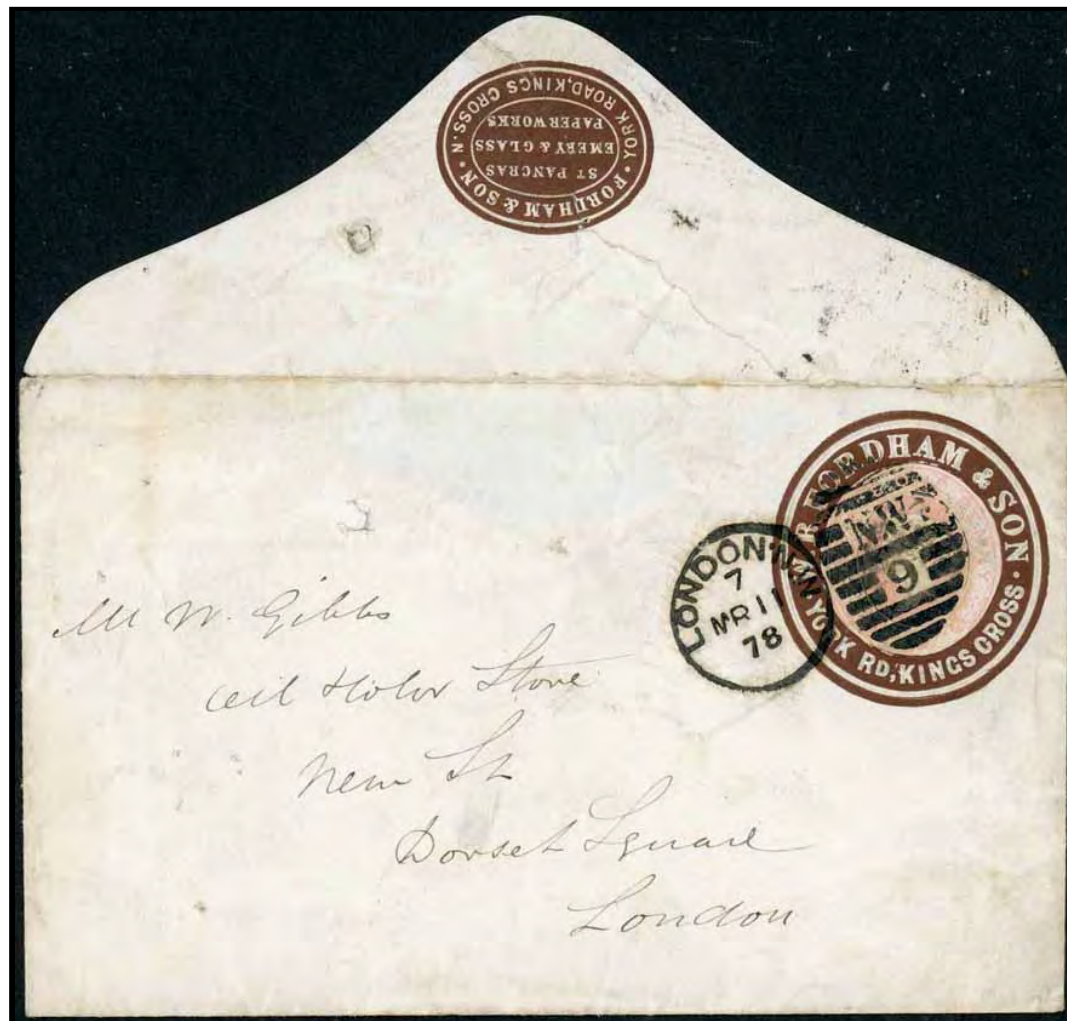 · FORDHAM & SON ·
YORK ROAD, KINGS CROSS. N.
ST PANCRAS
EMERY & GLASS
PAPERWORKS
W. R. FORDHAM & SON ·
YORK RD, KINGS CROSS ·
NW
9
LONDON·N.W
7
MR 11
78
Mr W. Gibbs
Oil & Color Store
New St
Dorset Square
London